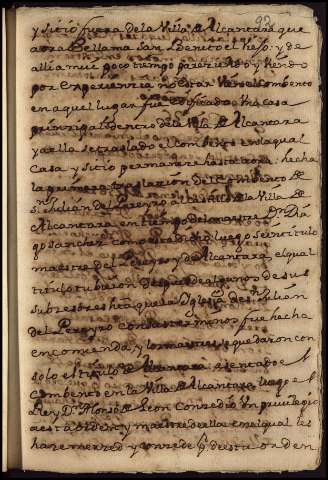 92
y sitio fuera de la Villa de Alcantara que
aora se llama san Benito el biejo. y de
alli a mui poco tiempo pareziendo y viendo
por Experiencia no estar bien el combento
en aquel lugar fue edificada una casa
prinzipal dentro de la Villa de Alcantara
y a ella se traslado el combento en la qual
casa y sitio permanece hasta aora: hecha
la primera traslazion del combento de
S. Julian del Pereyro a la dicha Villa de
Alcantara en tiempo del maestre Dn. Die
go sanchez como esta dicho luego se intitulo
maestre del Pereyro y de Alcantara, el qual
titulo tubieron despues algunos de sus
subzesores hta que la Yglesia de Sn. Julian
del Pereyro con sus terminos fue hecha
encomienda, y los maestres se quedaron con
solo el titulo de Alcantara, asentado el
combento en la Villa de Alcantara, luego el
Rey Dn. Alonso de Leon concedio un privilegio
a esta orden, y maestre de ella en el qual les
haze merzed y conzede q. de esta orden